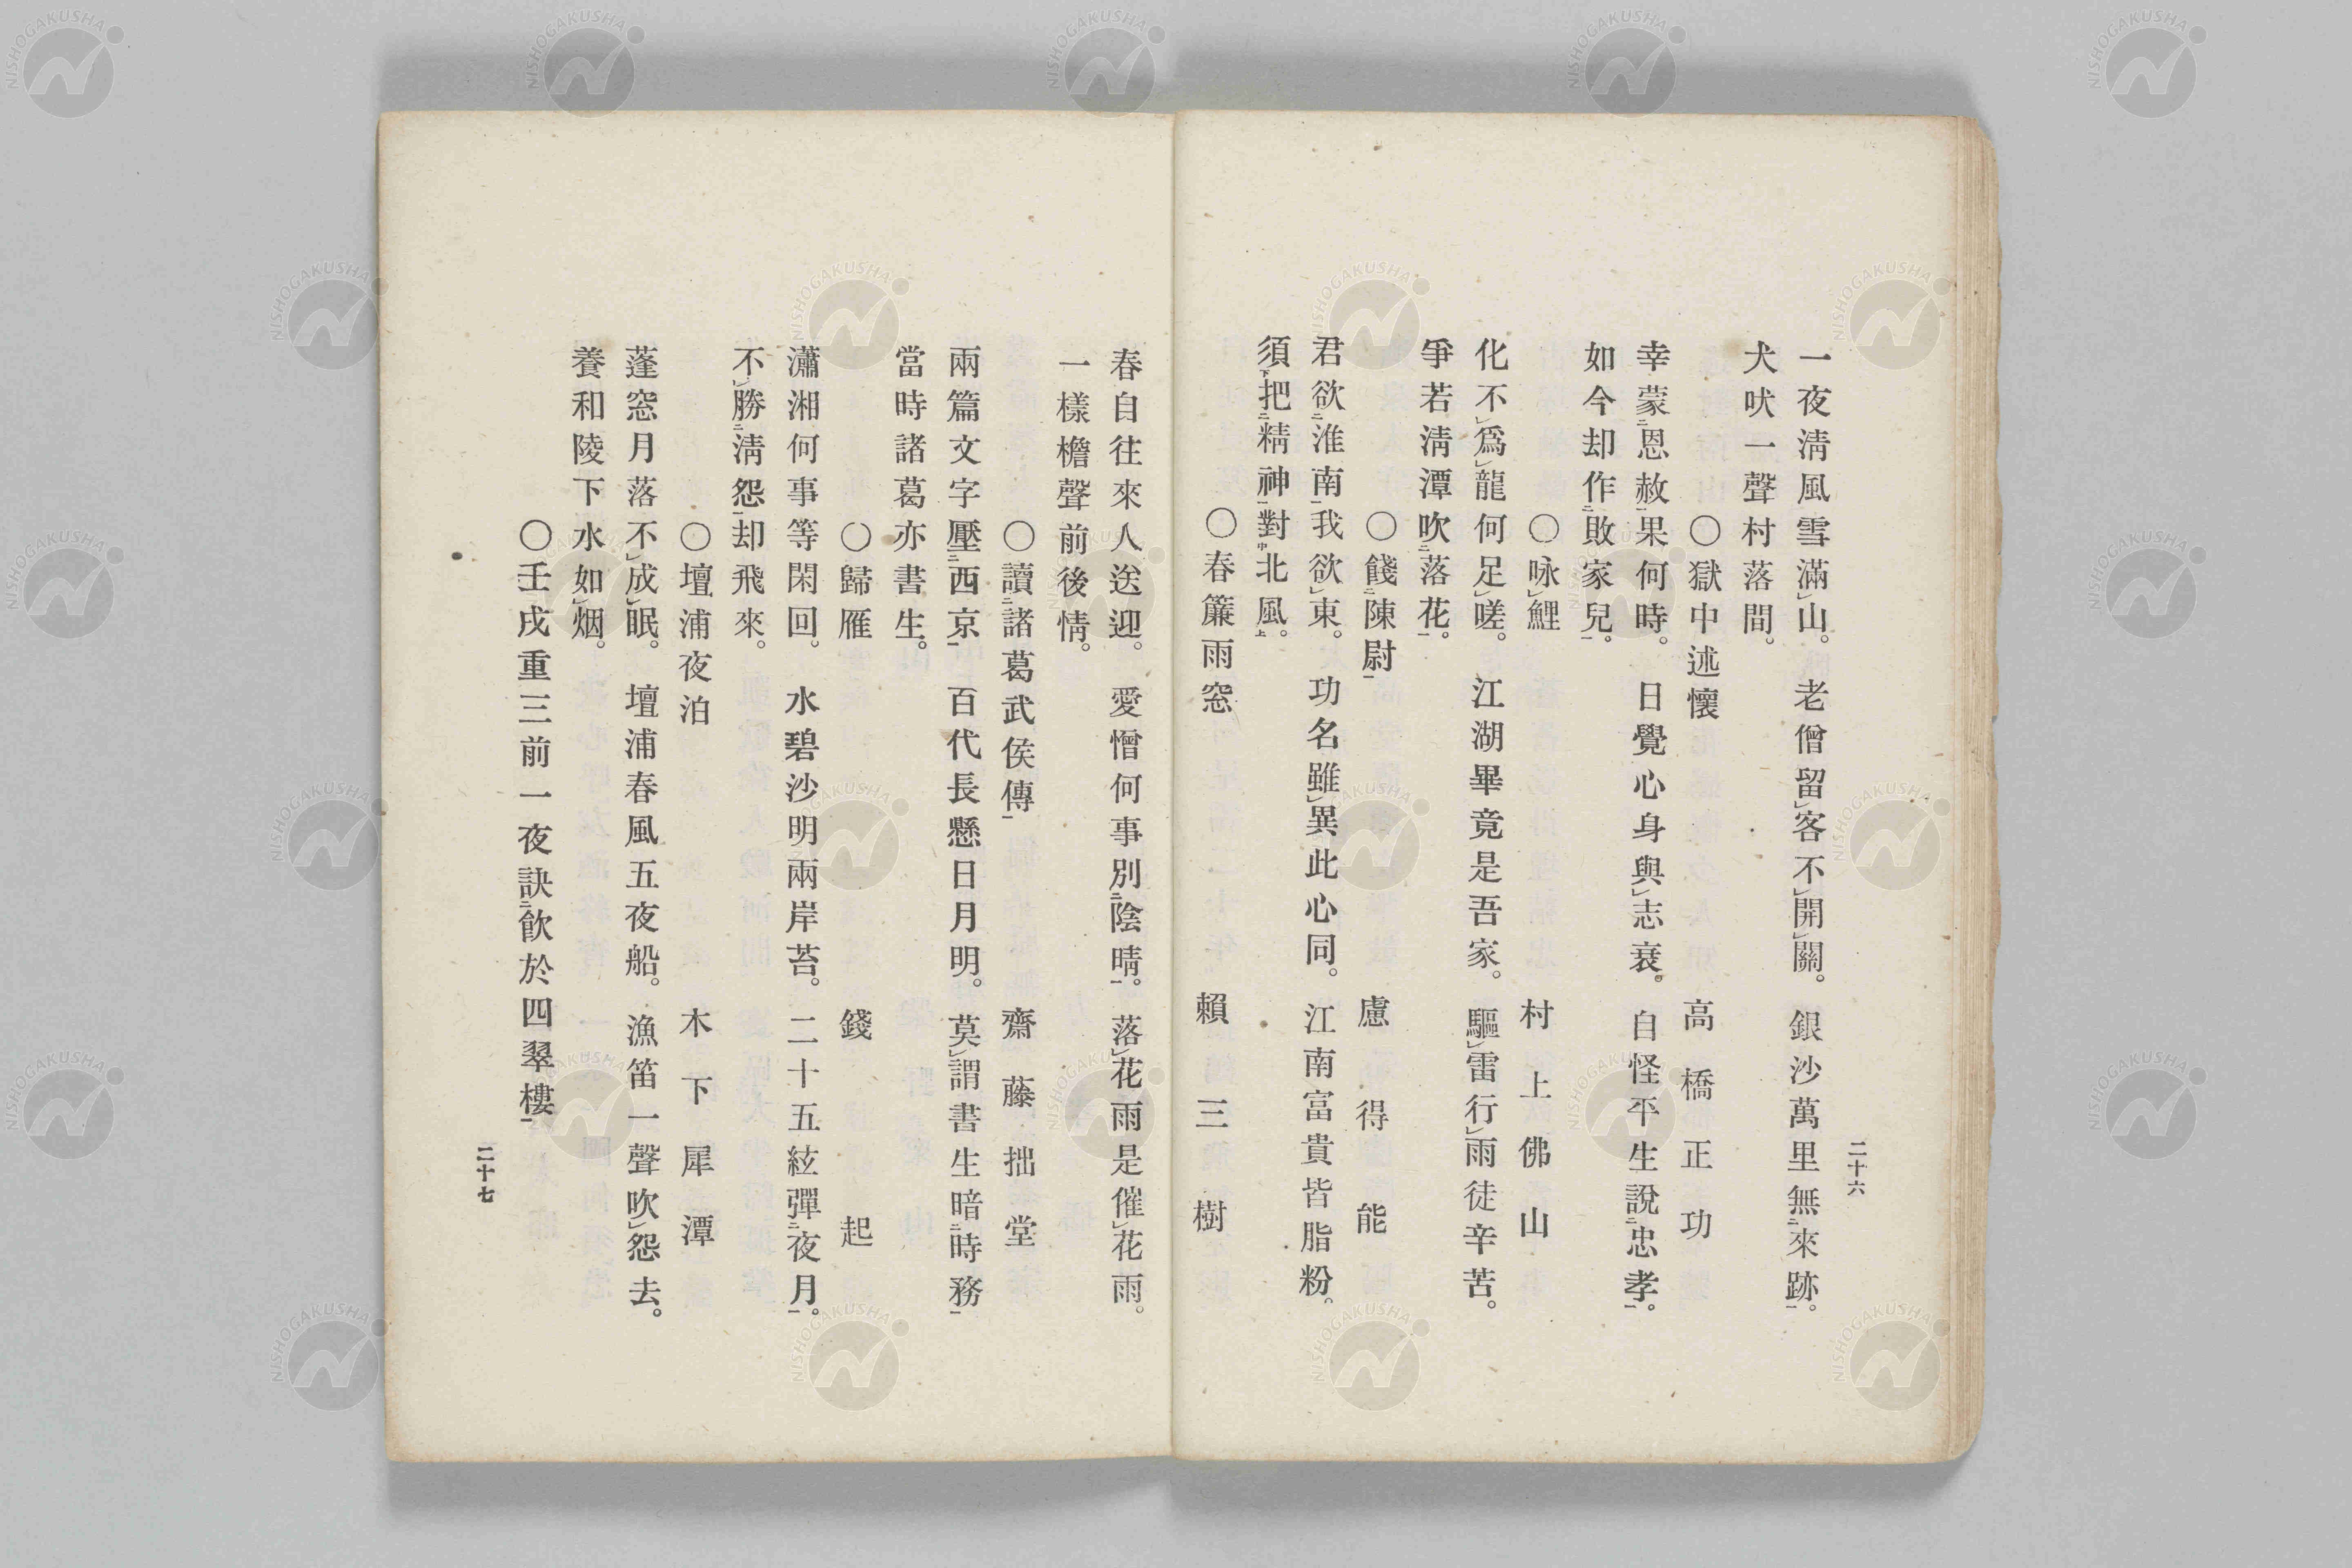 二十六
一夜淸風雪滿レ山。　老僧留レ客不レ開レ關。　銀沙萬里無二來跡一。
犬吠一聲村落間。
〇獄中述懷　高橋正功
幸蒙二恩赦一果何時。　日覺心身與レ志衰。　自怪平生說二忠孝一。
如今却作二敗家兒一。
〇咏レ鯉　村上佛山
化不レ爲レ龍何足レ嗟。　江湖畢竟是吾家。　驅レ雷行レ雨徒辛苦。
爭若淸潭吹二落花一。
〇餞二陳尉一　盧得能
君欲二淮南一我欲レ東。　功名雖レ異此心同。　江南富貴皆脂粉。
須下把二精神一對中北風上。
〇春簾雨窓　賴三樹
春自往來人送迎。　愛憎何事別二陰晴一。　落レ花雨是催レ花雨。
一樣檐聲前後情。
〇讀二諸葛武侯傳一　齋藤拙堂
兩篇文字壓二西京一　百代長懸日月明。　莫レ謂書生暗二時務一
當時諸葛亦書生。
〇歸雁　錢起
瀟湘何事等閑回。　水碧沙明兩岸苔。　二十五絃彈二夜月一。
不レ勝二淸怨一却飛來。
〇壇浦夜泊　木下犀潭
蓬窓月落不レ成レ眠。　壇浦春風五夜船。　漁笛一聲吹レ怨去。
養和陵下水如レ烟。
〇壬戌重三前一夜訣二飮於四翠樓一
二十七
NISHOGAKUSHA